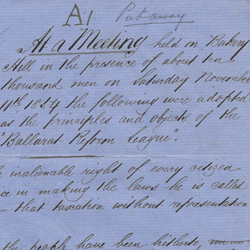 A1 Put away
At a Meeting held on Bakery
Hill in the presence of about ten
thousand men on Saturday November
11th 1854 the following were adopted
as the principles and objects of the
"Ballarat Reform League".
inalienable right of every citizen
ce in making the laws he is called
that taxation without representation
the people have been hitherto